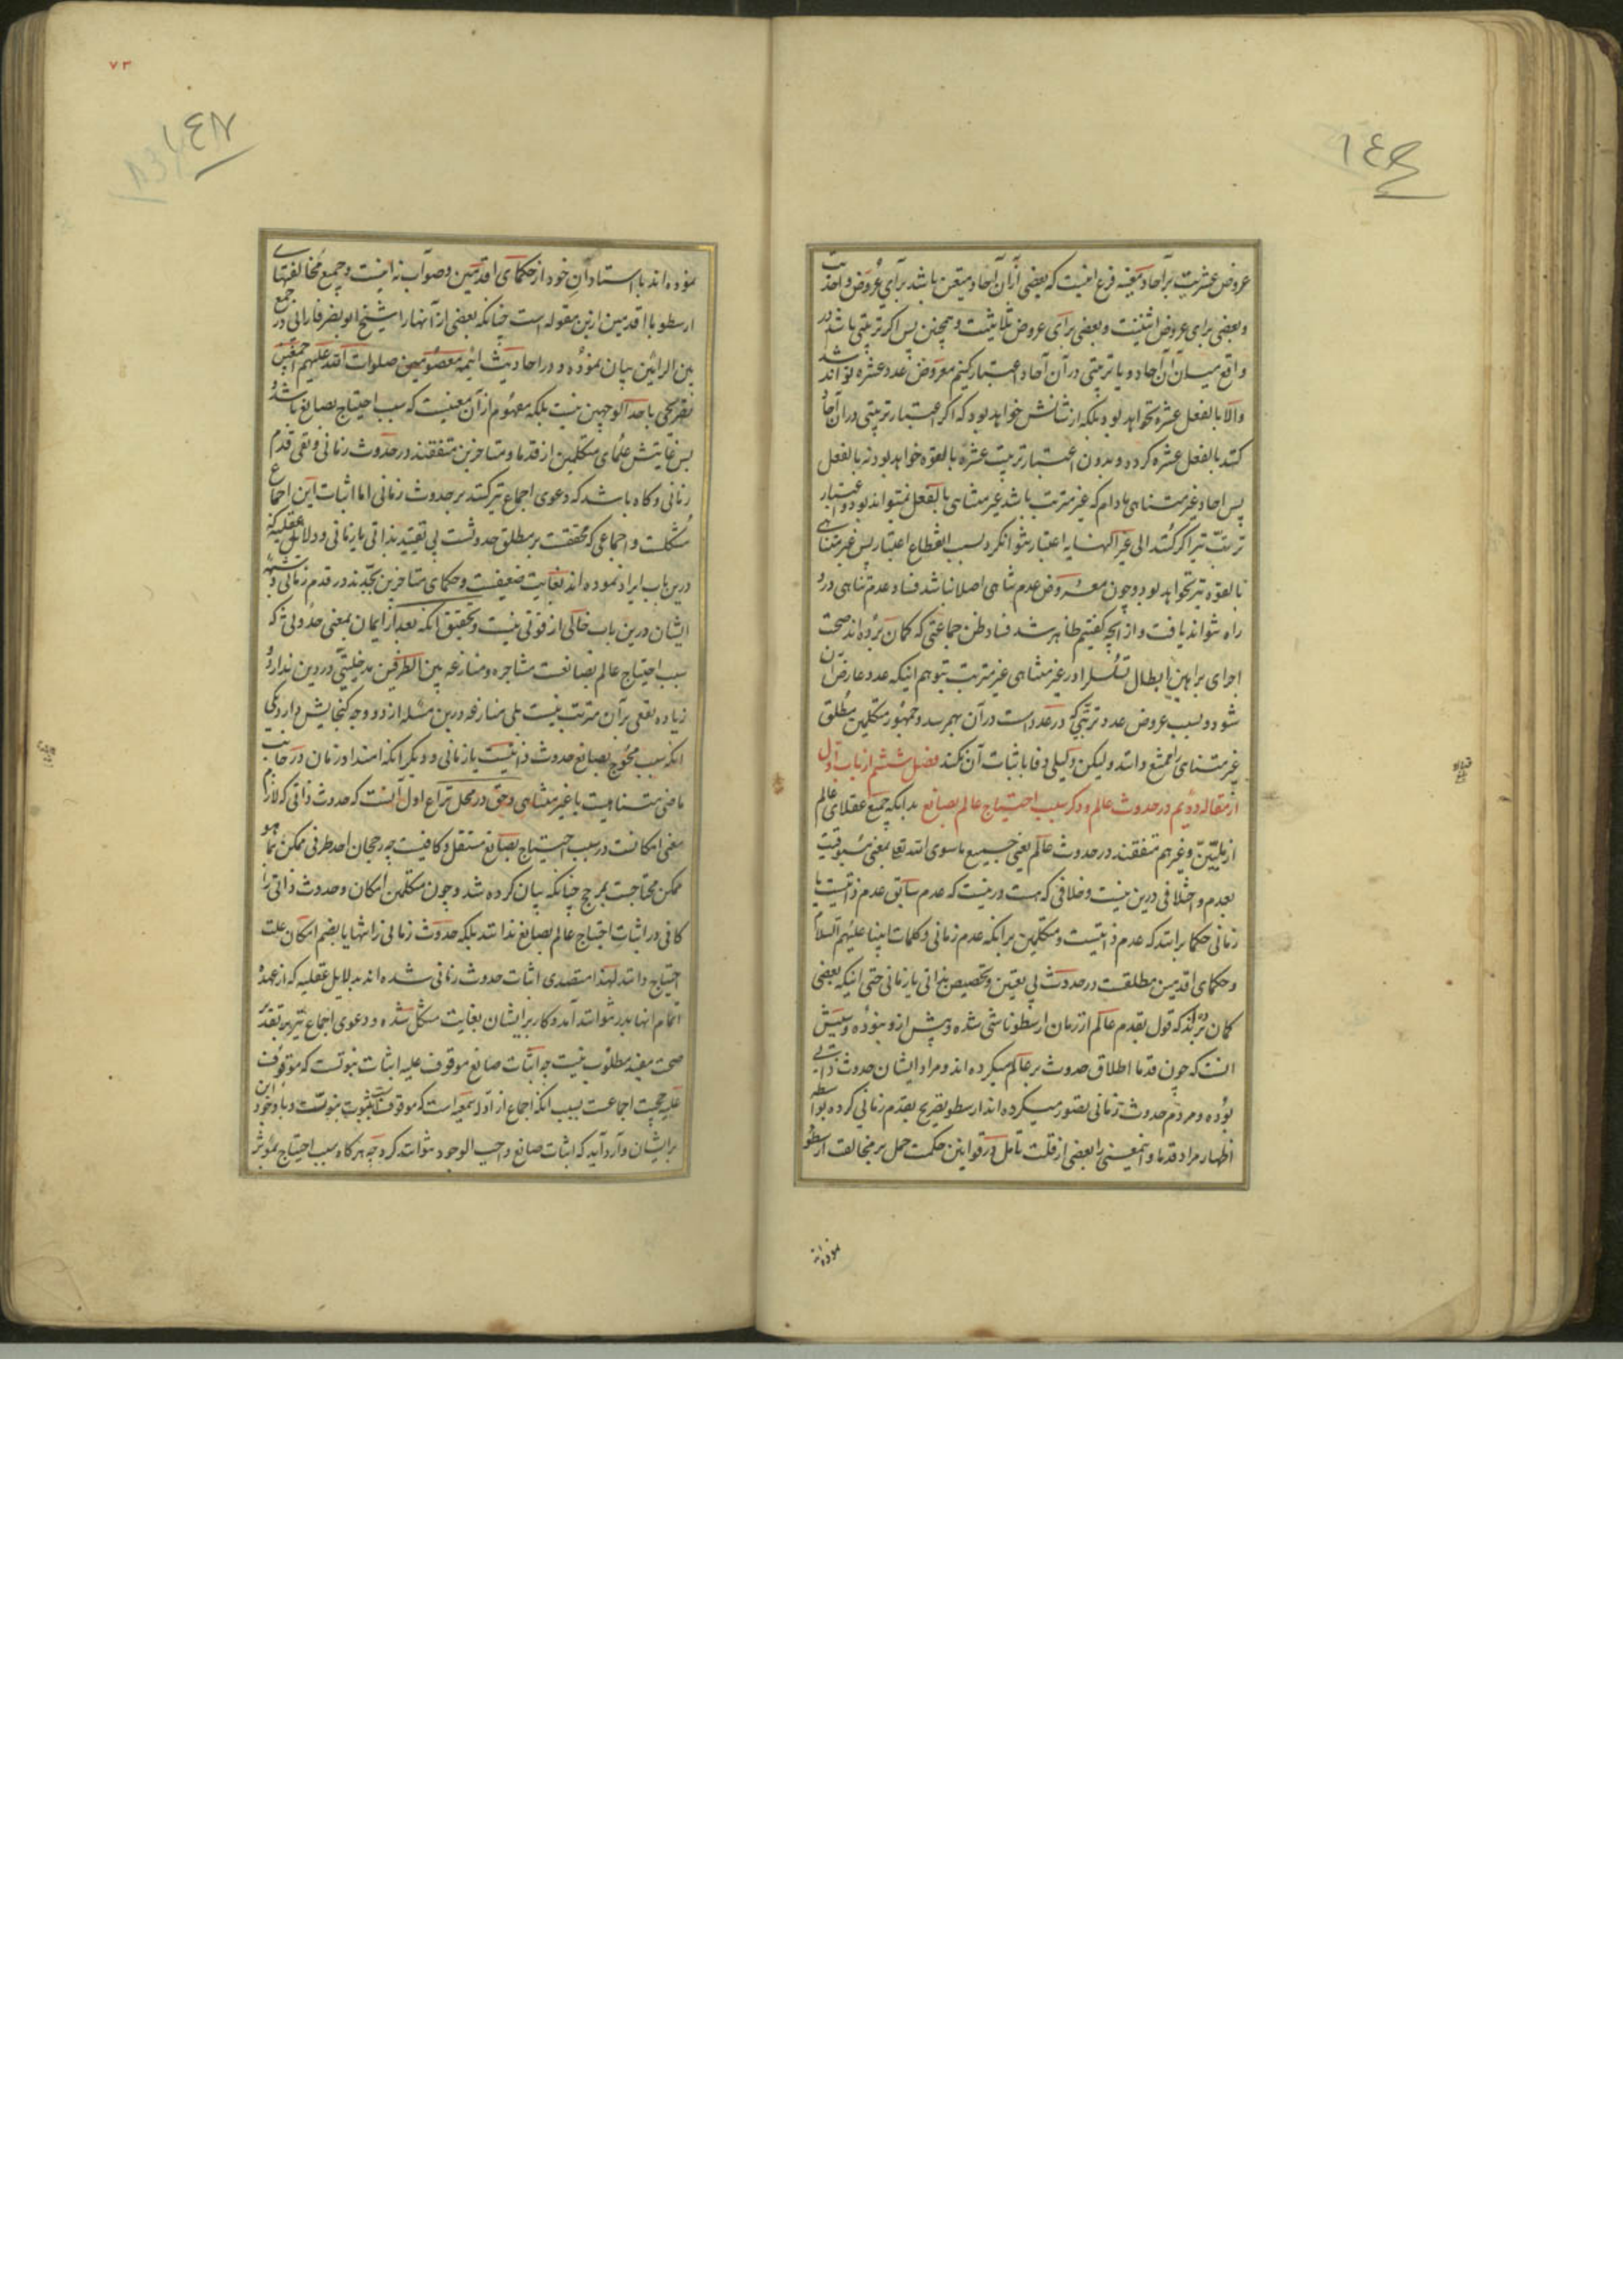 ١٤٦
عروض عشریت بر آحاد معینه فرع اینست که بعضی از آن آحاد متعین باشد برای عروض واحدیت
و بعضی برای عروض اثنینیت و بعضی برای عروض ثلاثیت و همچنین پس اگر ترتیبی باشد در
واقع میان آن آحاد و یا ترتیبی در آن آحاد اعتبار کنیم معروض عدد عشره تواند شد
والا بالفعل عشره نخواهد بود بلکه از شانش خواهد بود که اگر اعتبار ترتیبی در آن آحاد
کنند بالفعل عشره کردد و بدون اعتبار ترتیب عشره بالقوه خواهد بود نه بالفعل
پس احاد غیر متناهی مادام که غیر مترتب باشد غیر متناهی بالفعل نمیتواند بود و اعتبار
ترتیب نیز اگر کنند الی غیر النهایه اعتبار نتوانکرد بسبب انقطاع اعتبار پس غیر متناهی
بالقوه نیز نخواهد بود و چون معروض عدم تناهی اصلا نباشد فساد عدم تناهی درو
راه نتواند یافت و از آنچه کفتیم ظاهر شد فساد ظن جماعتی که کمان برده‌اند صحت
اجرای براهین ابطال تسلسل را در غیر متناهی غیر مترتب بتوهم اینکه عدد عارض آن
شود و بسبب عروض عدد ترتبی که در عدد است در آن بهم رسد و جمهور متکلمین مطلق
غیر متناهی را ممتنع دانند ولیکن دلیلی وفا باثبات آن نکند فصل ششم از باب اول
از مقاله دویم در حدوث عالم و ذکر سبب احتیاج عالم بصانع بدانکه جمیع عقلای عالم
از ملیین و غیرهم متفقند در حدوث عالم یعنی جمیع ماسوی الله تعا بمعنی مسبوقیت
بعدم و اختلافی درین نیست و خلافی که هست درینست که عدم سابق عدم ذاتیست یا
زمانی حکما برانند که عدم ذاتیست و متکلمین برانکه عدم زمانی و کلمات انبیا علیهم السلام
و حکمای اقدمین مطلقست در حدوث بی تعیین و تخصیص بذاتی یا زمانی حتی اینکه بعضی
کمان برده‌اند که قول بقدم عالم از زمان ارسطو ناشی شده و پیش ازو نبوده و سببش
انست که چون قدما اطلاق حدوث بر عالم میکرده‌اند و مراد ایشان حدوث ذاتی
بوده و مردم حدوث زمانی تصور میکرده‌اند ارسطو تصریح بقدم زمانی کرده بواسطه
اظهار مراد قدما و اینمعنی را بعضی از قلت تامل در قوانین حکمت حمل بر مخالفت ارسطو
نموده‌اند
٧٣
١٤٧
نموده‌اند با استادان خود از حکمای اقدمین و صواب نه اینست و جمیع مخالفتهای
ارسطو با اقدمین ازین مقوله است چنانکه بعضی از آنها را شیخ ابو نصر فارابی در جمع
بین الرایین بیان نموده و در احادیث ائمه معصومین صلوات الله علیهم اجمعین
تصریحی باحد الوجهین نیست بلکه مفهوم از آن معنیست که سبب احتیاج بصانع باشد
پس غایتش علمای متکلمین از قدما و متاخرین متفقند در حدوث زمانی و نفی قدم
زمانی و کاه باشد که دعوی اجماع نیز کنند بر حدوث زمانی اما اثبات این اجماع
مشکلست و اجماعی که محققست بر مطلق حدوثست بی تقیید بذاتی یا زمانی و دلائل عقلیه که
درین باب ایراد نموده‌اند بغایت ضعیفست و حکمای متاخرین بجدند در قدم زمانی و شبهه
ایشان درین باب خالی از قوتی نیست و تحقیق آنکه بعد از ایمان بمعنی حدوثی که
سبب احتیاج عالم بصانعست مشاجره و منازعه بین الطرفین مدخلیتی در دین ندارد و
زیاده نفعی بر آن مترتب نیست بلی منازعه درین مسئله از دو وجه کنجایش دارد یکی
انکه سبب محوج بصانع حدوث ذاتیست یا زمانی و دیگر آنکه امتداد زمان در جانب
ماضی متناهیست یا غیر متناهی و حق در محل نزاع اول آنست که حدوث ذاتی که لازم
معنی امکانست در سبب احتیاج بصانع مستقل و کافیست چه رجحان احد طرفی ممکن بما هو
ممکن محتاجست بمرجح چنانکه بیان کرده شد و چون متکلمین امکان و حدوث ذاتی را
کافی در اثبات احتیاج عالم بصانع ندانند بلکه حدوث زمانی را تنها یا بضم امکان علت
احتیاج دانند لهذا متصدی اثبات حدوث زمانی شده‌اند بدلایل عقلیه که از عهده
اتمام انها بدر نتوانند آمد و کار بر ایشان بغایت مشکل شده و دعوی اجماع نیز بر تقدیر
صحت مفید مطلوب نیست چه اثبات صانع موقوف علیه اثبات نبوتست که موقوف
علیه حجیت اجماعست بسبب انکه اجماع از ادله سمعیه است که موقوفست بثبوت نبوت و با وجود این
بر ایشان وارد آید که اثبات صانع واجب الوجود نتوانند کرد چه هر کاه سبب احتیاج بموثر